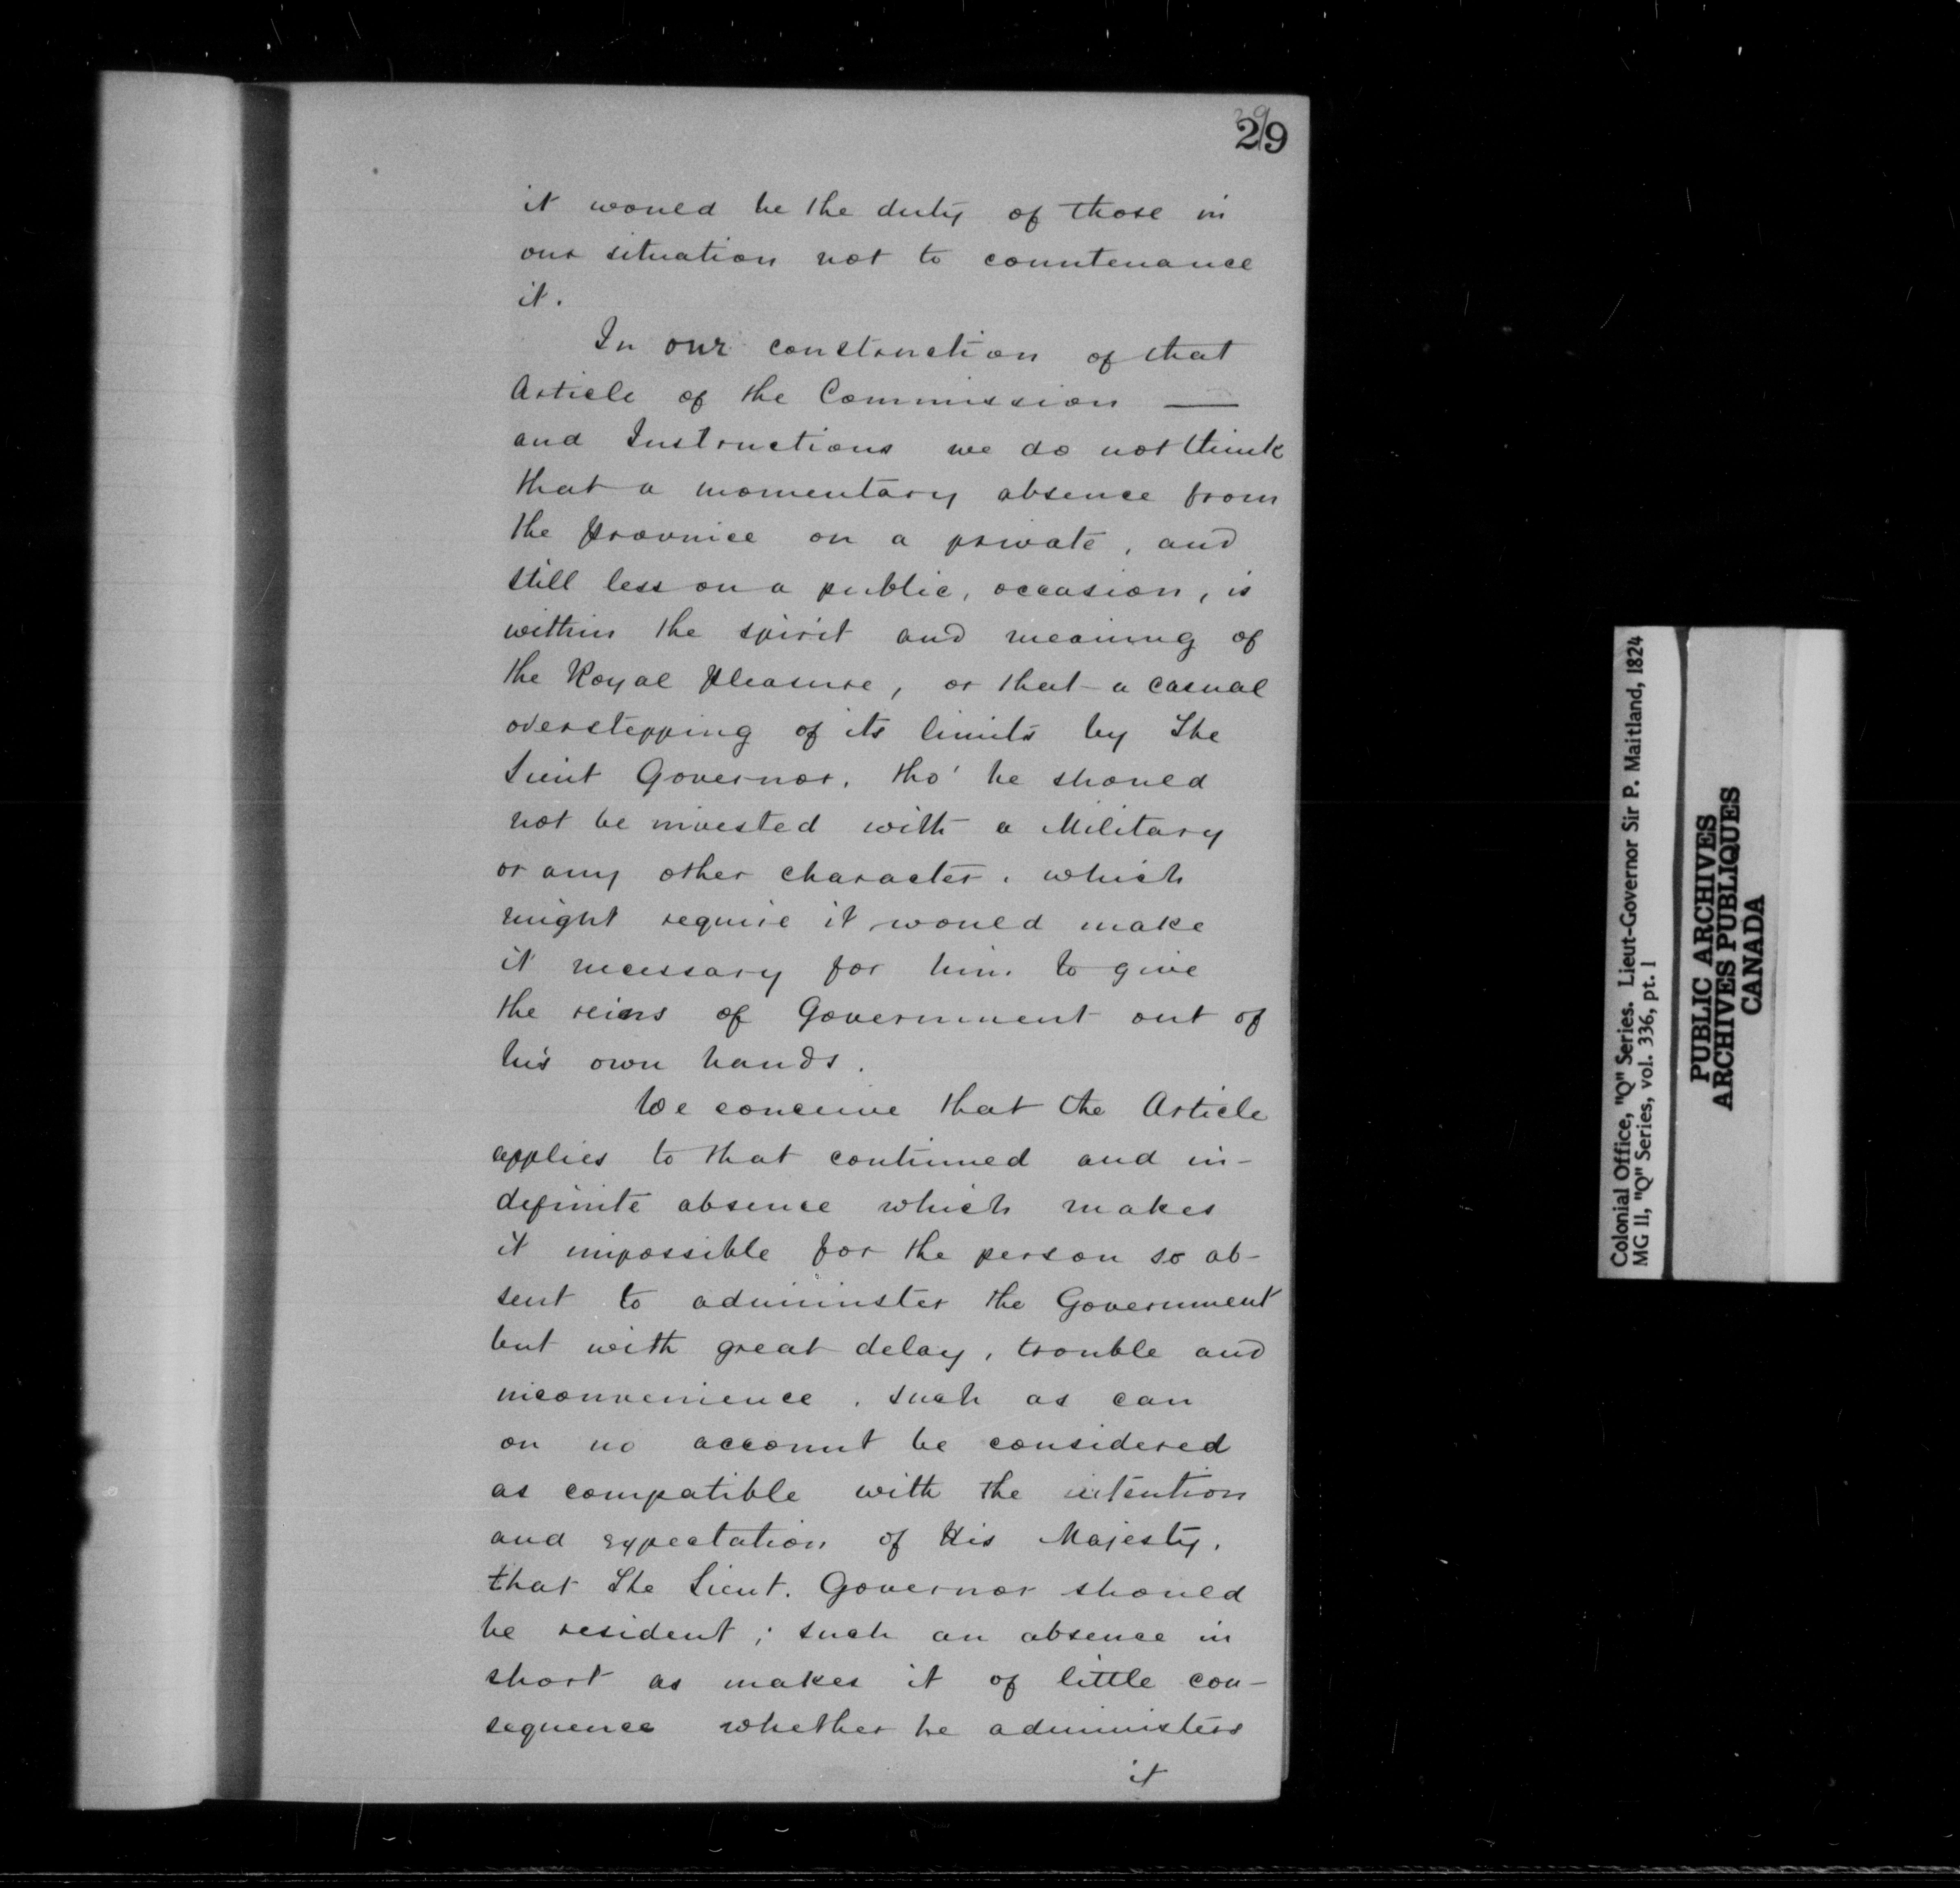 29
it would be the duty of those in
our situation not to countenance
it.
In our construction of that
Article of the Commission —
and Instructions we do not think
that a momentary absence from
the Province on a private, and
still less on a public, occasion, is
within the spirit and meaning of
the Royal Pleasure, or that a casual
overstepping of its limits by The
Lieut Governor, tho' he should
not be invested with a Military
or any other character, which
might require it would make
it necessary for him to give
the reins of Government out of
his own hands.
We conceive that the Article
applies to that continued and in-
definite absence which makes
it impossible for the person so ab-
sent to administer the Government
but with great delay, trouble and
inconvenience, such as can
on no account be considered
as compatible with the intention
and expectation of His Majesty,
that The Lieut. Governor should
be resident; such an absence in
short as makes it of little con-
sequence whether he administers
it
Colonial Office, "Q" Series. Lieut-Governor Sir P. Maitland, 1824
MG 11, "Q" Series, vol. 336, pt. 1
PUBLIC ARCHIVES
ARCHIVES PUBLIQUES
CANADA